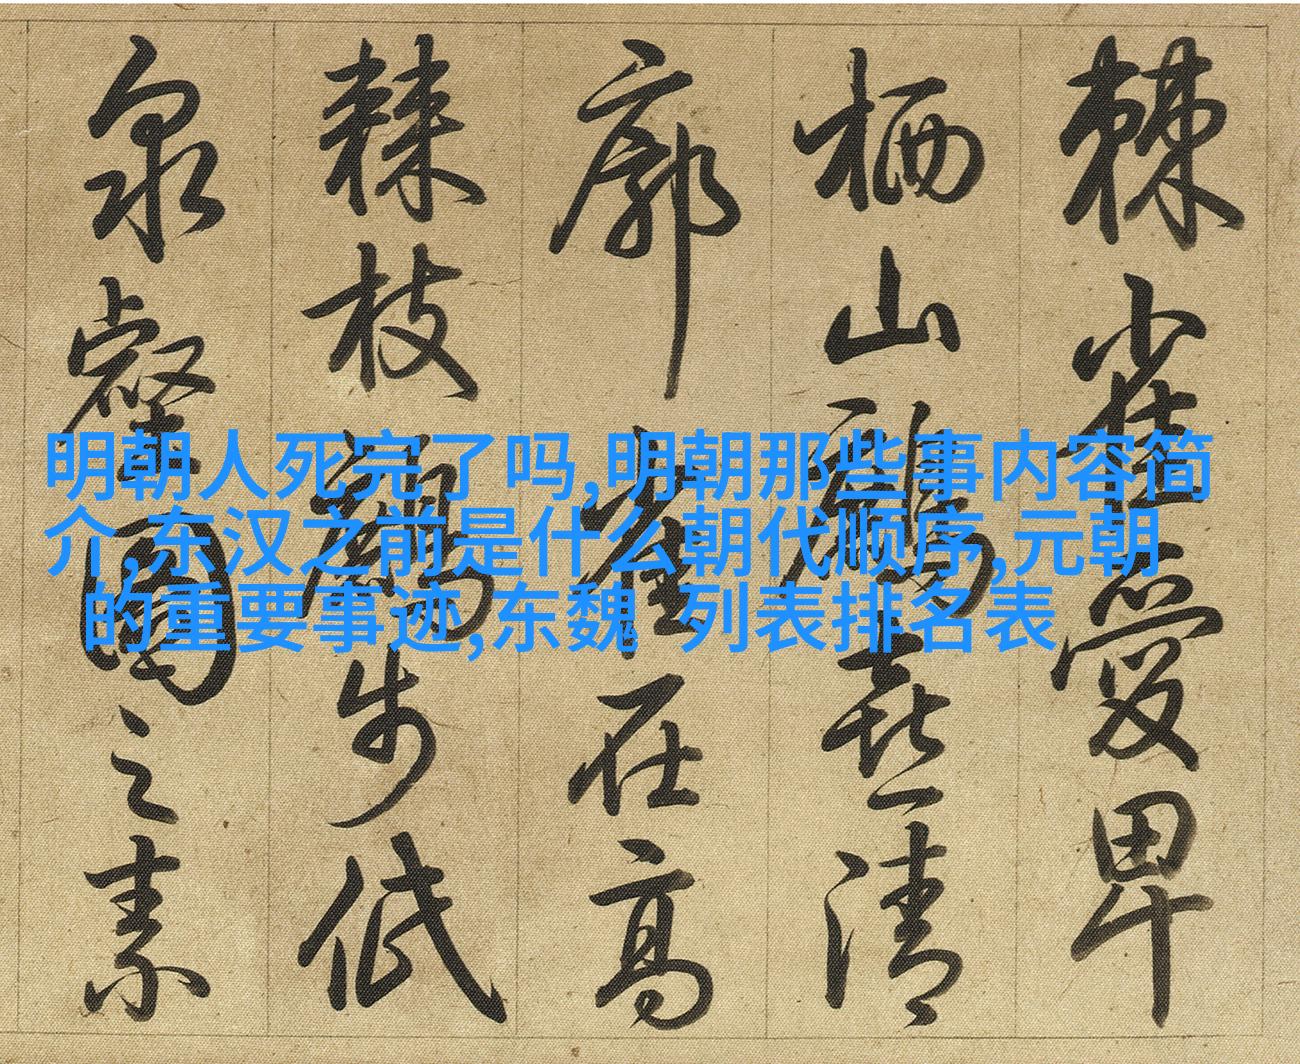 明朝人死完了吗,明朝那些事内容简
介,东汉之前是什么朝代顺序,元朝
的重要事迹,东魏 列表排名表
棘雀愛卑
栖山喜清
廓在高
棘枝步低
泉之素